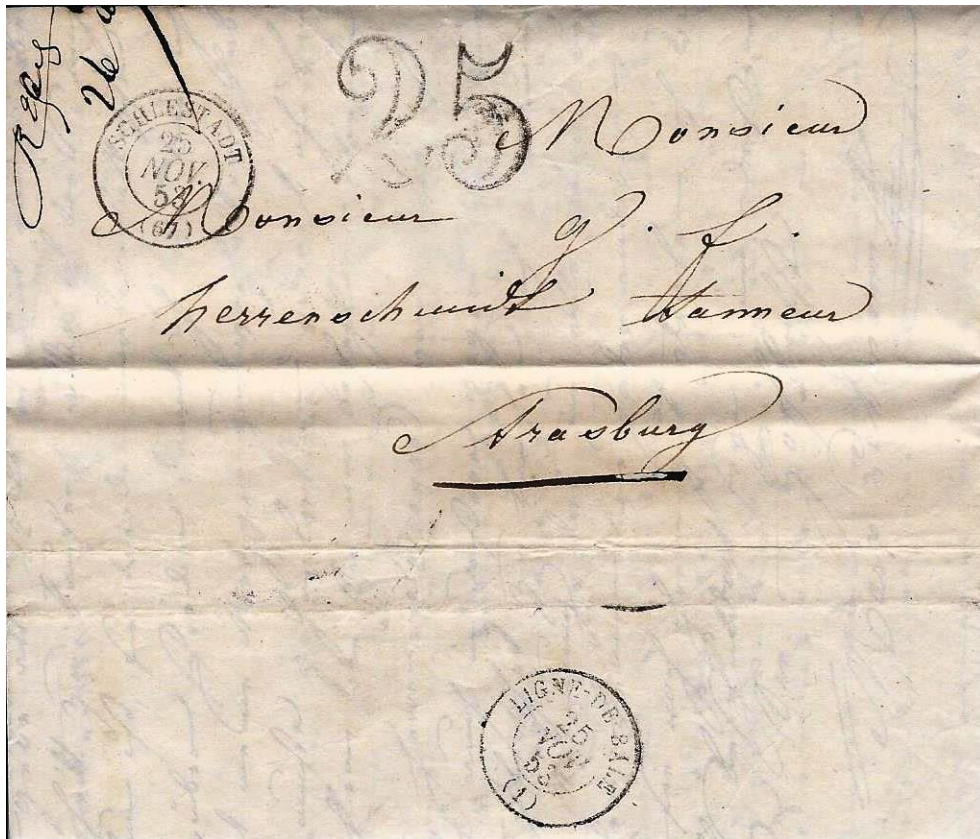 26
SCHLESTADT
25
NOV.
53
(67)
25
Monsieur
Monsieur g. f.
herrenschmidt tanneur
Strasburg
LIGNE-DE-BALE
25
NOV
53
(1)